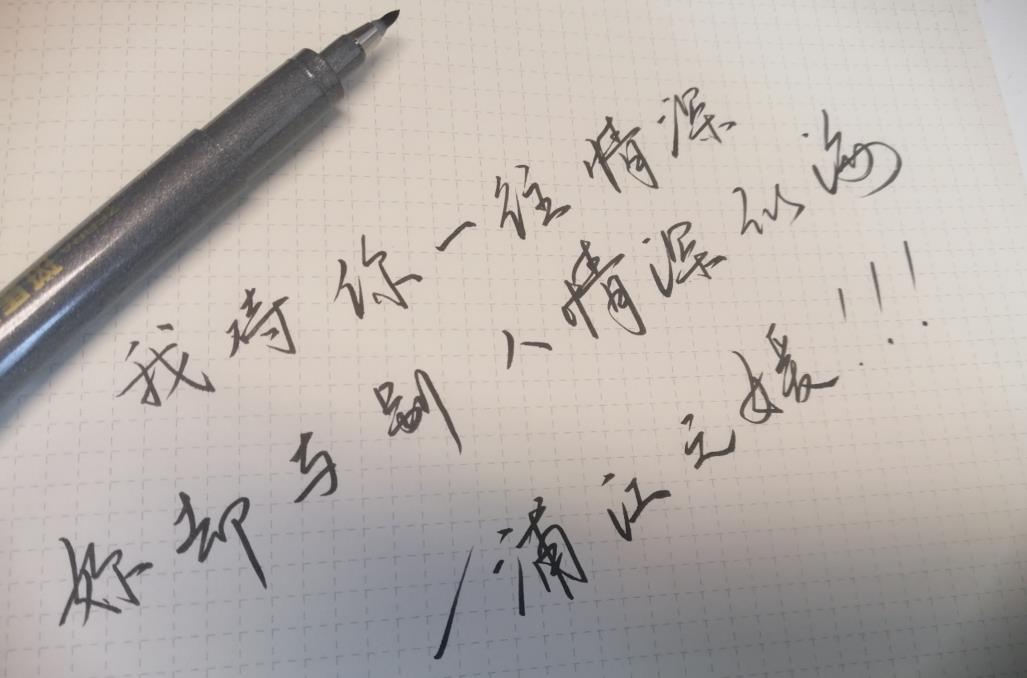 我待你一往情深
妳却与别人情深似海
/浦江之媛!!!